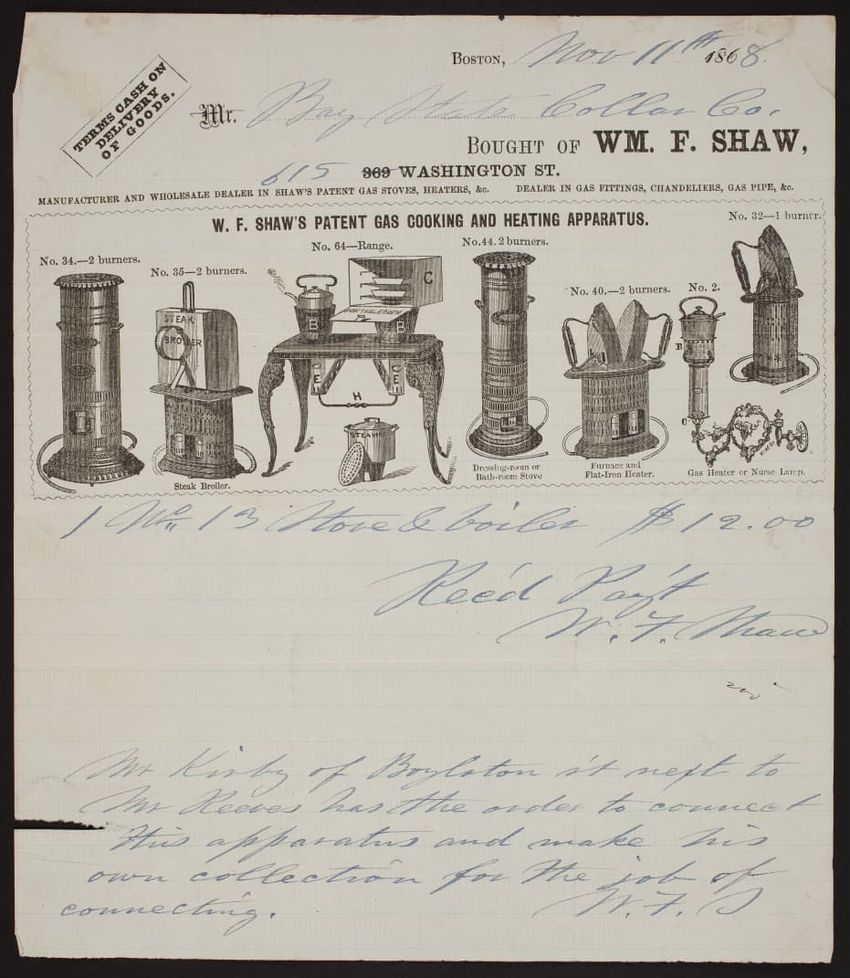 Boston, Nov 11th 1868.
TERMS CASH ON
DELIVERY
OF GOODS.
Mr. Bay State Collar Co.
Bought of WM. F. SHAW,
615 369 WASHINGTON ST.
MANUFACTURER AND WHOLESALE DEALER IN SHAW'S PATENT GAS STOVES, HEATERS, &c. DEALER IN GAS FITTINGS, CHANDELIERS, GAS PIPE, &c.
W. F. SHAW'S PATENT GAS COOKING AND HEATING APPARATUS.
No. 34.—2 burners.
No. 35—2 burners.
STEAK
BROILER
Steak Broiler.
No. 64—Range.
C
PORTABLE OVEN
B
B
E
E
H
STEAMER
No. 44. 2 burners.
Dressing-room or
Bath-room Stove
No. 40.—2 burners.
Furnace and
Flat-Iron Heater.
No. 2.
B
C
Gas Heater or Nurse Lamp.
No. 32—1 burner.
1 No. 13 Stove & boiler $12.00
Rec'd Pay't
W. F. Shaw
Mr Kirby of Boylston st next to
Mr Reeves has the order to connect
this apparatus and make his
own collection for the job of
connecting. W. F. S